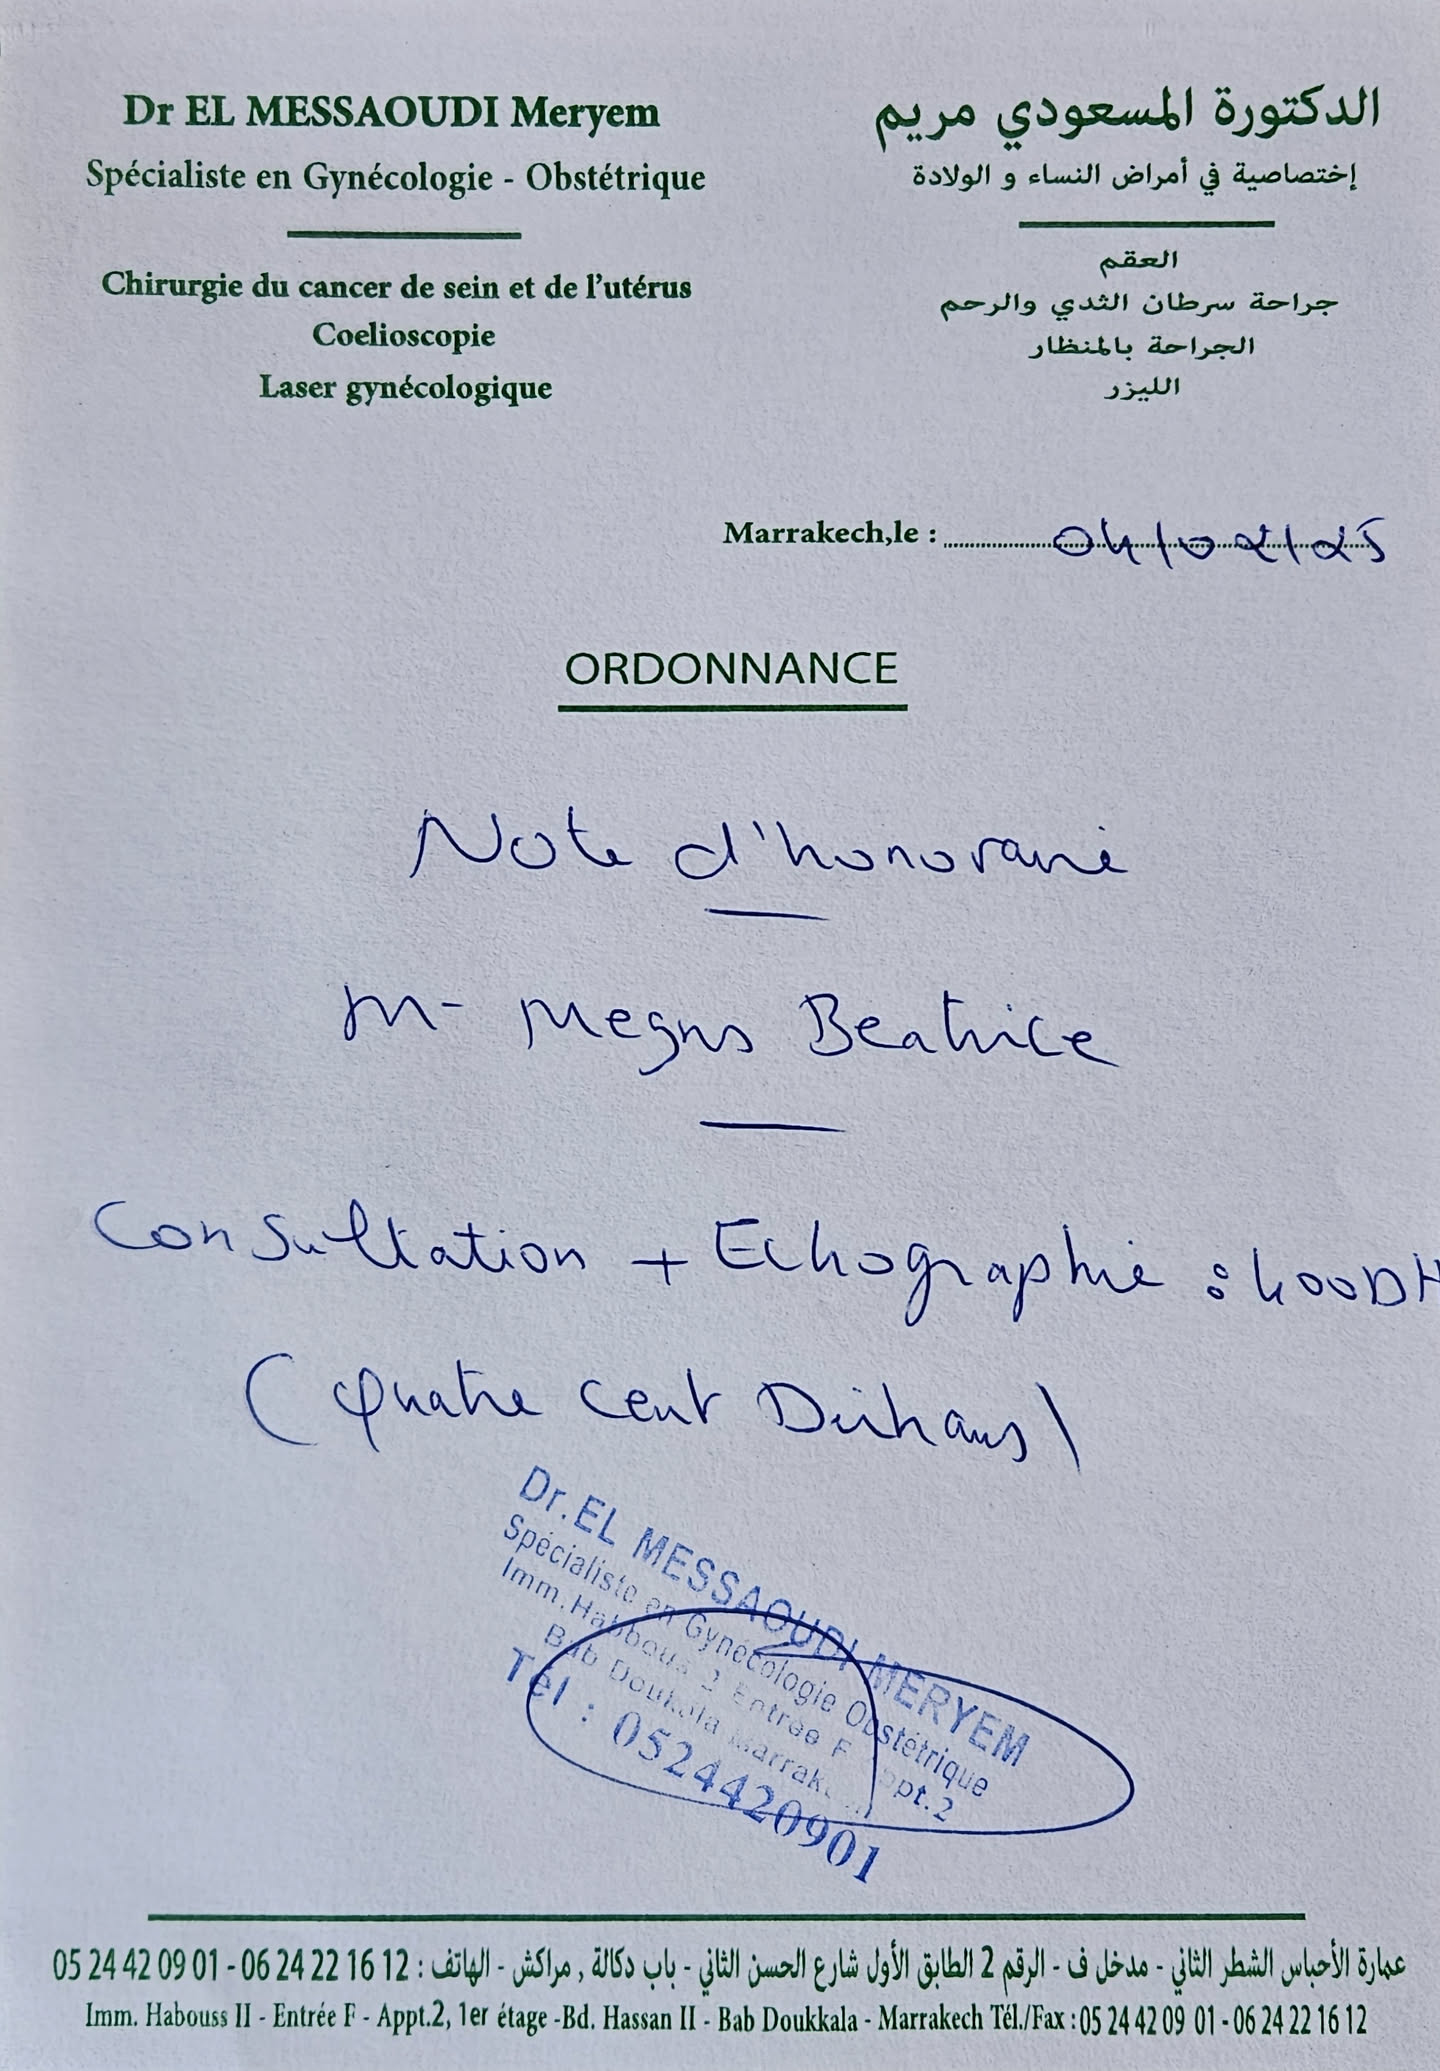 Dr EL MESSAOUDI Meryem
Spécialiste en Gynécologie - Obstétrique
Chirurgie du cancer de sein et de l'utérus
Coelioscopie
Laser gynécologique
الدكتورة المسعودي مريم
إختصاصية في أمراض النساء و الولادة
العقم
جراحة سرطان الثدي والرحم
الجراحة بالمنظار
الليزر
Marrakech,le : 04/02/25
ORDONNANCE
Note d'honoraire
M- Beatrice
Consultation + Echographie : 400DH
(Quatre cent Dirhams)
Dr.EL MESSAOUDI MERYEM
Spécialiste en Gynécologie Obstétrique
Imm.Habbous 2 Entrée F Appt.2
Bab Doukala Marrakech
Tél : 0524420901
عمارة الأحباس الشطر الثاني - مدخل ف - الرقم 2 الطابق الأول شارع الحسن الثاني - باب دكالة , مراكش - الهاتف : 05 24 42 09 01 - 06 24 22 16 12
Imm. Habouss II - Entrée F - Appt.2, 1er étage -Bd. Hassan II - Bab Doukkala - Marrakech Tél./Fax : 05 24 42 09 01 - 06 24 22 16 12